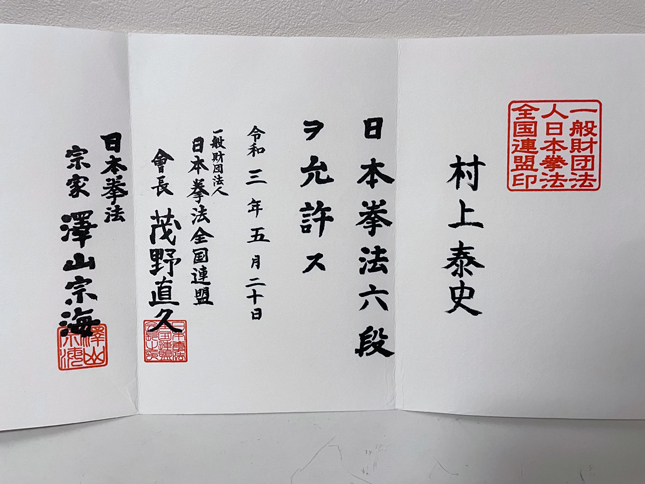 一般財団法
人日本拳法
全国連盟印
村上泰史
日本拳法六段
ヲ允許ス
令和三年五月二十日
一般財団法人
日本拳法全国連盟
會長 茂野直久
日本拳法
宗家 澤山宗海